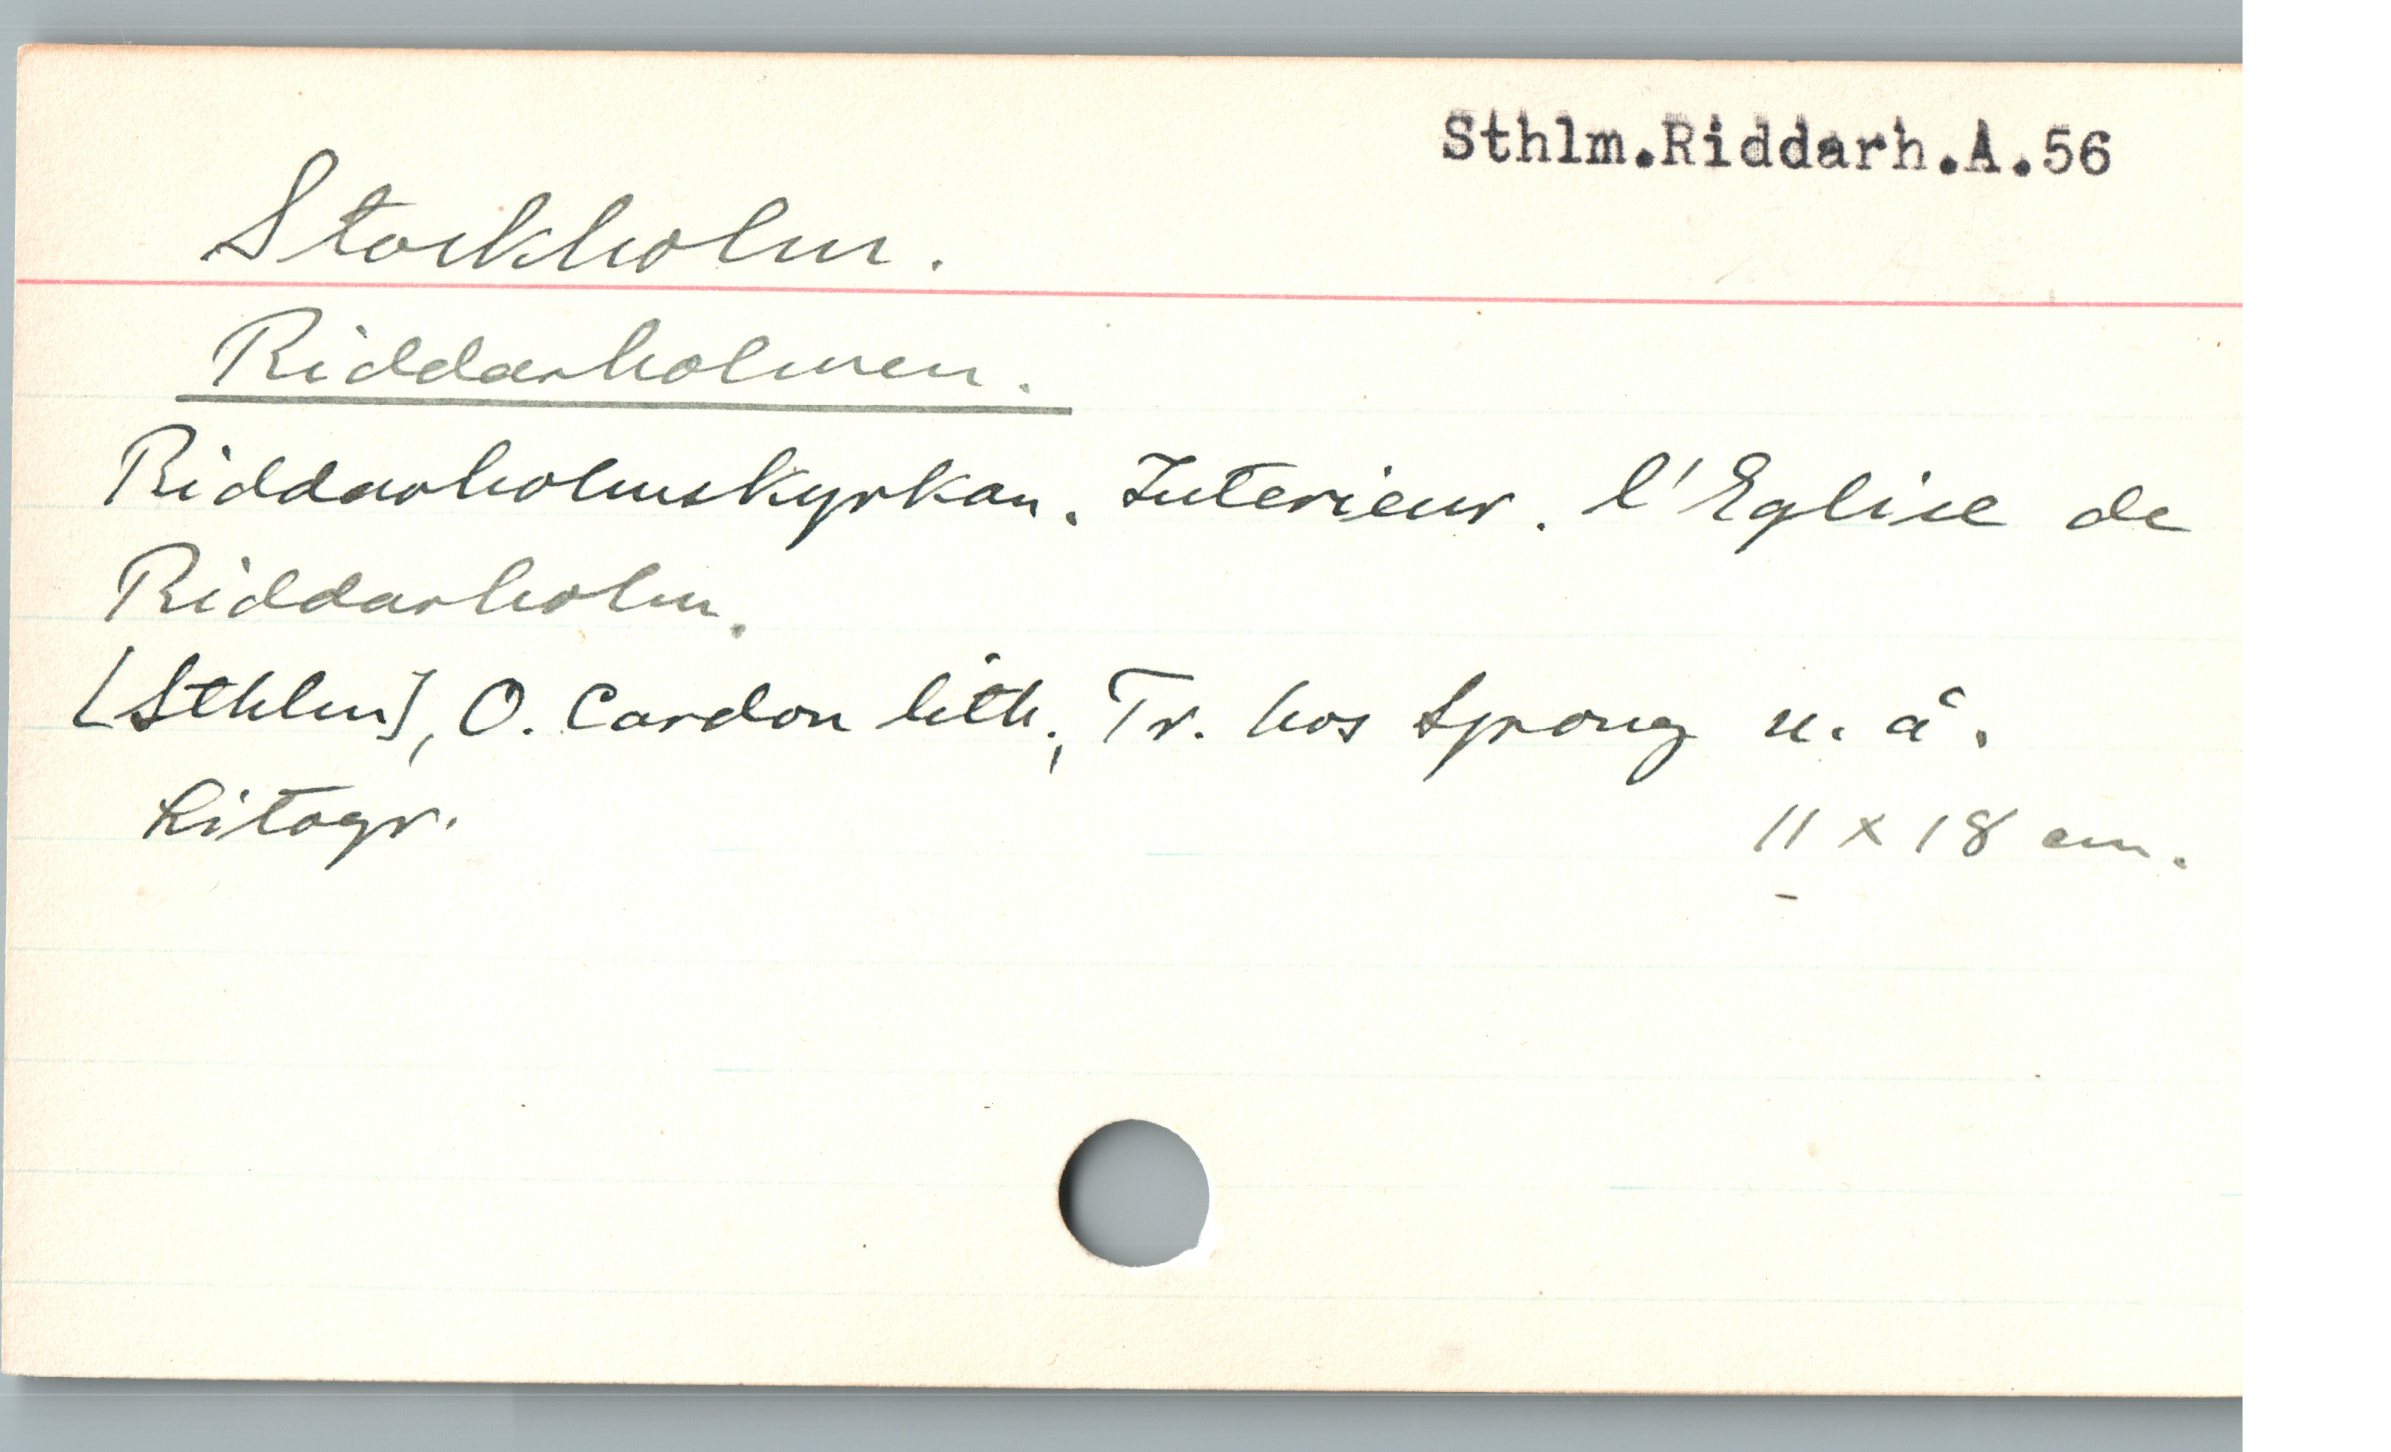 Sthlm.Riddarh.A.56
Stockholm.
Riddarholmen.
Riddarholmskyrkan. Interieur. l'Eglise de
Riddarholm.
[Sthlm], O. Cardon lith., Tr. hos Spong u. å.
Litogr.
11 x 18 cm.